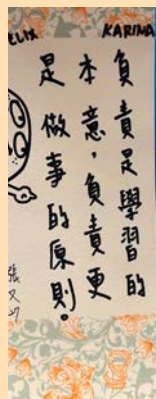 ELIX
KARINA
負責是學習的
本意，負責更
是做事的原則。
張又